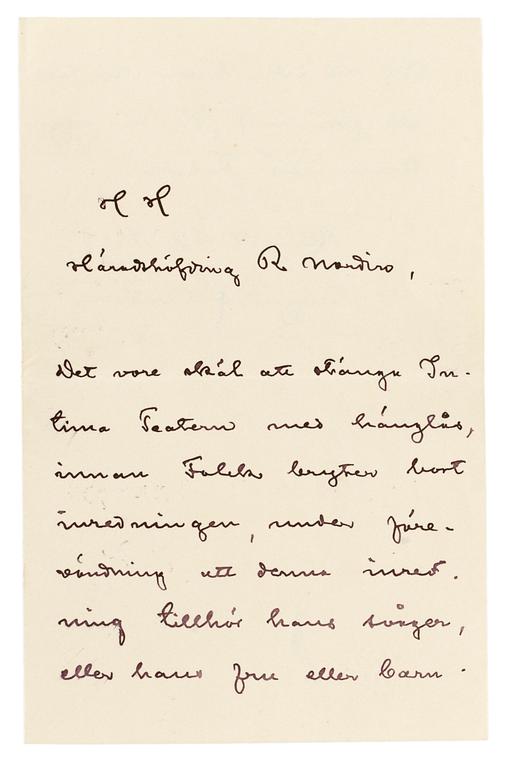 H H
Häradshöfding R Nordin,
Det vore skäl att stänga In-
tima Teatern med hänglås,
innan Falck bryter bort
inredningen, under före-
vändning att denna inred.
ning tillhör hans svåger,
eller hans fru eller barn.